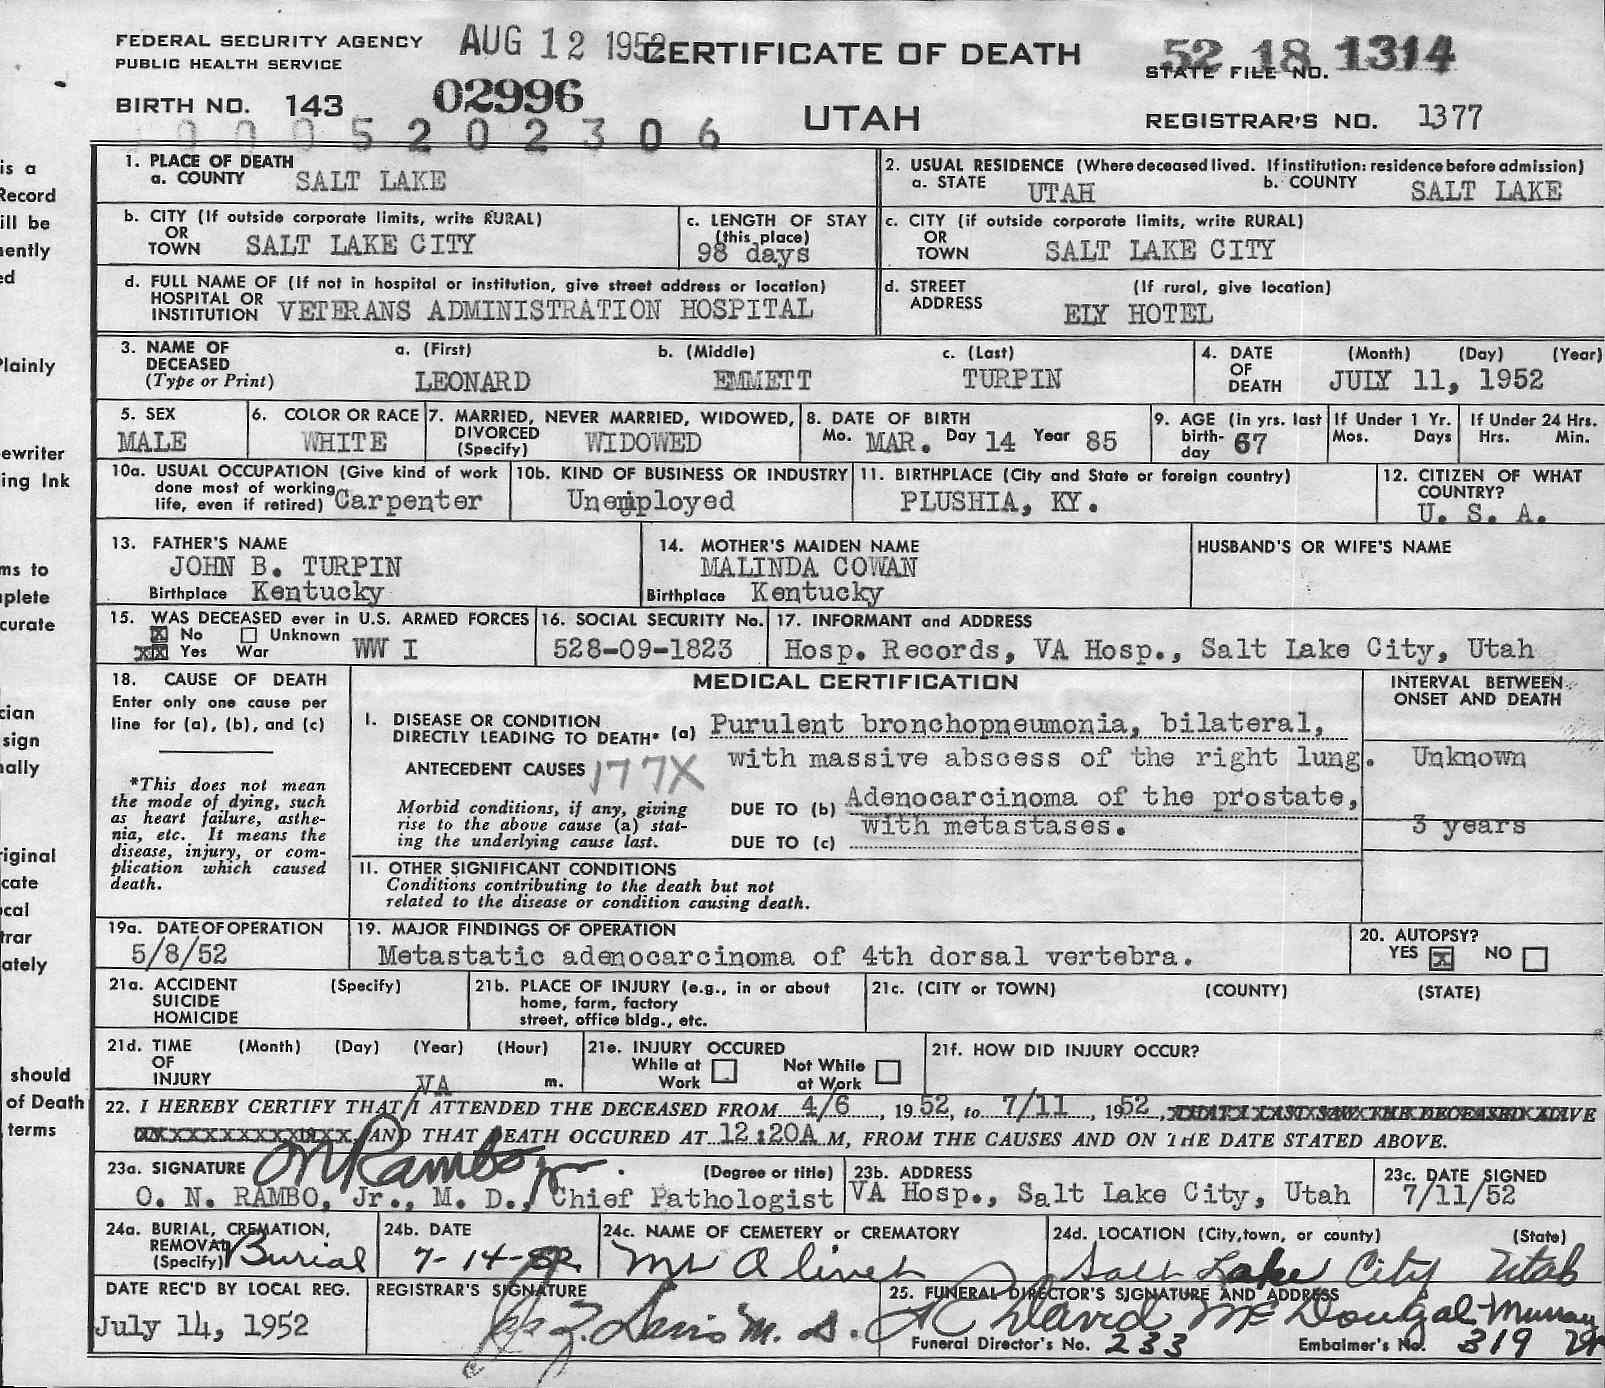 FEDERAL SECURITY AGENCY
PUBLIC HEALTH SERVICE
AUG 12 1952
CERTIFICATE OF DEATH
52 18 1314
STATE FILE NO.
BIRTH NO. 143
02996
UTAH
REGISTRAR'S NO. 1377
0005202306
1. PLACE OF DEATH
a. COUNTY SALT LAKE
2. USUAL RESIDENCE (Where deceased lived. If institution: residence before admission)
a. STATE UTAH b. COUNTY SALT LAKE
b. CITY (If outside corporate limits, write RURAL)
OR
TOWN SALT LAKE CITY
c. LENGTH OF STAY
(this place)
98 days
c. CITY (if outside corporate limits, write RURAL)
OR
TOWN SALT LAKE CITY
d. FULL NAME OF (If not in hospital or institution, give street address or location)
HOSPITAL OR
INSTITUTION VETERANS ADMINISTRATION HOSPITAL
d. STREET (If rural, give location)
ADDRESS ELY HOTEL
3. NAME OF
DECEASED
(Type or Print)
a. (First) b. (Middle) c. (Last)
LEONARD EMMETT TURPIN
4. DATE
OF
DEATH
(Month) (Day) (Year)
JULY 11, 1952
5. SEX
MALE
6. COLOR OR RACE
WHITE
7. MARRIED, NEVER MARRIED, WIDOWED,
DIVORCED
(Specify) WIDOWED
8. DATE OF BIRTH
Mo. MAR. Day 14 Year 85
9. AGE (in yrs. last
birth-
day 67
If Under 1 Yr.
Mos. Days
If Under 24 Hrs.
Hrs. Min.
10a. USUAL OCCUPATION (Give kind of work
done most of working
life, even if retired) Carpenter
10b. KIND OF BUSINESS OR INDUSTRY
Unemployed
11. BIRTHPLACE (City and State or foreign country)
PLUSHIA, KY.
12. CITIZEN OF WHAT
COUNTRY?
U. S. A.
13. FATHER'S NAME
JOHN B. TURPIN
Birthplace Kentucky
14. MOTHER'S MAIDEN NAME
MALINDA COWAN
Birthplace Kentucky
HUSBAND'S OR WIFE'S NAME
15. WAS DECEASED ever in U.S. ARMED FORCES
No Unknown
Yes War WW I
16. SOCIAL SECURITY No.
528-09-1823
17. INFORMANT and ADDRESS
Hosp. Records, VA Hosp., Salt Lake City, Utah
18. CAUSE OF DEATH
Enter only one cause per
line for (a), (b), and (c)
*This does not mean
the mode of dying, such
as heart failure, asthe-
nia, etc. It means the
disease, injury, or com-
plication which caused
death.
MEDICAL CERTIFICATION
INTERVAL BETWEEN
ONSET AND DEATH
I. DISEASE OR CONDITION
DIRECTLY LEADING TO DEATH* (a) Purulent bronchopneumonia, bilateral,
with massive abscess of the right lung. Unknown
ANTECEDENT CAUSES 177X
Morbid conditions, if any, giving
rise to the above cause (a) stat-
ing the underlying cause last.
DUE TO (b) Adenocarcinoma of the prostate,
with metastases. 3 years
DUE TO (c)
II. OTHER SIGNIFICANT CONDITIONS
Conditions contributing to the death but not
related to the disease or condition causing death.
19a. DATE OF OPERATION
5/8/52
19. MAJOR FINDINGS OF OPERATION
Metastatic adenocarcinoma of 4th dorsal vertebra.
20. AUTOPSY?
YES X NO
21a. ACCIDENT (Specify)
SUICIDE
HOMICIDE
21b. PLACE OF INJURY (e.g., in or about
home, farm, factory
street, office bldg., etc.
21c. (CITY or TOWN) (COUNTY) (STATE)
21d. TIME (Month) (Day) (Year) (Hour)
OF
INJURY m.
21e. INJURY OCCURED
While at Not While
Work at Work
21f. HOW DID INJURY OCCUR?
VA
22. I HEREBY CERTIFY THAT/I ATTENDED THE DECEASED FROM 4/6, 1952, to 7/11, 1952, THAT I LAST SAW THE DECEASED ALIVE
AND THAT DEATH OCCURED AT 12:20A M, FROM THE CAUSES AND ON THE DATE STATED ABOVE.
23a. SIGNATURE ON Rambo Jr. (Degree or title)
O. N. RAMBO, Jr., M. D., Chief Pathologist
23b. ADDRESS
VA Hosp., Salt Lake City, Utah
23c. DATE SIGNED
7/11/52
24a. BURIAL, CREMATION,
REMOVAL
(Specify) Burial
24b. DATE
7-14-52
24c. NAME OF CEMETERY or CREMATORY
Mt Olivet
24d. LOCATION (City, town, or county) (State)
Salt Lake City Utah
DATE REC'D BY LOCAL REG.
July 14, 1952
REGISTRAR'S SIGNATURE
25. FUNERAL DIRECTOR'S SIGNATURE AND ADDRESS
David McDougal Murray
Funeral Director's No. 233 Embalmer's No. 319
is a
Record
ill be
nently
ed
Plainly
ewriter
ing Ink
ms to
plete
curate
cian
sign
nally
riginal
cate
ocal
trar
ately
should
of Death
terms